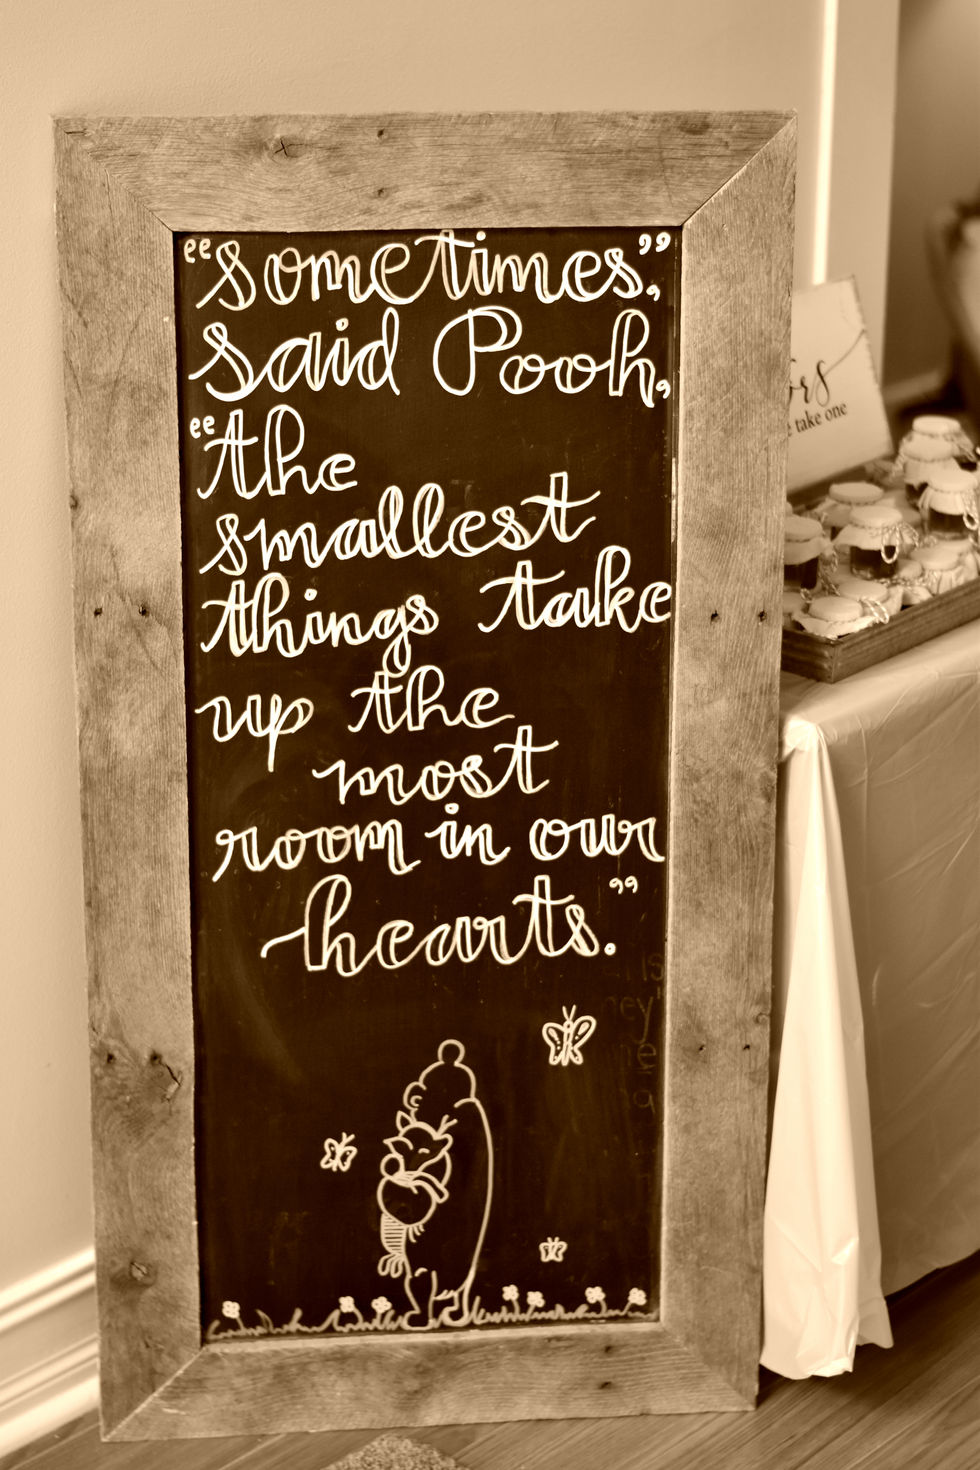 “sometimes,”
said Pooh,
“the
smallest
things take
up the
most
room in our
hearts.”
take one